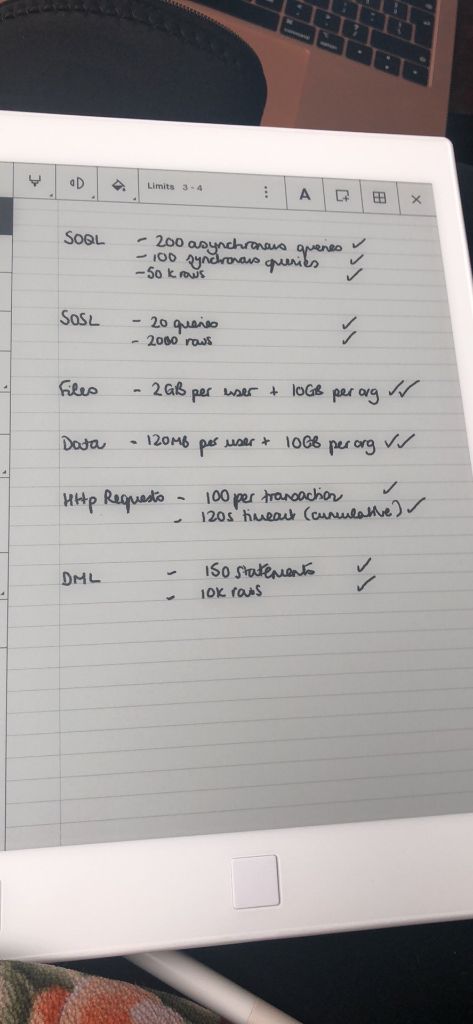 Limits 3 - 4
A
SOQL - 200 asynchronous queries ✓
- 100 synchronous queries ✓
- 50 k rows ✓
SOSL - 20 queries ✓
- 2000 rows ✓
Files - 2GB per user + 10GB per org ✓✓
Data - 120MB per user + 10GB per org ✓✓
HTTp Requests - 100 per transaction ✓
- 120s timeout (cumulative) ✓
DML - 150 statements ✓
- 10K rows ✓